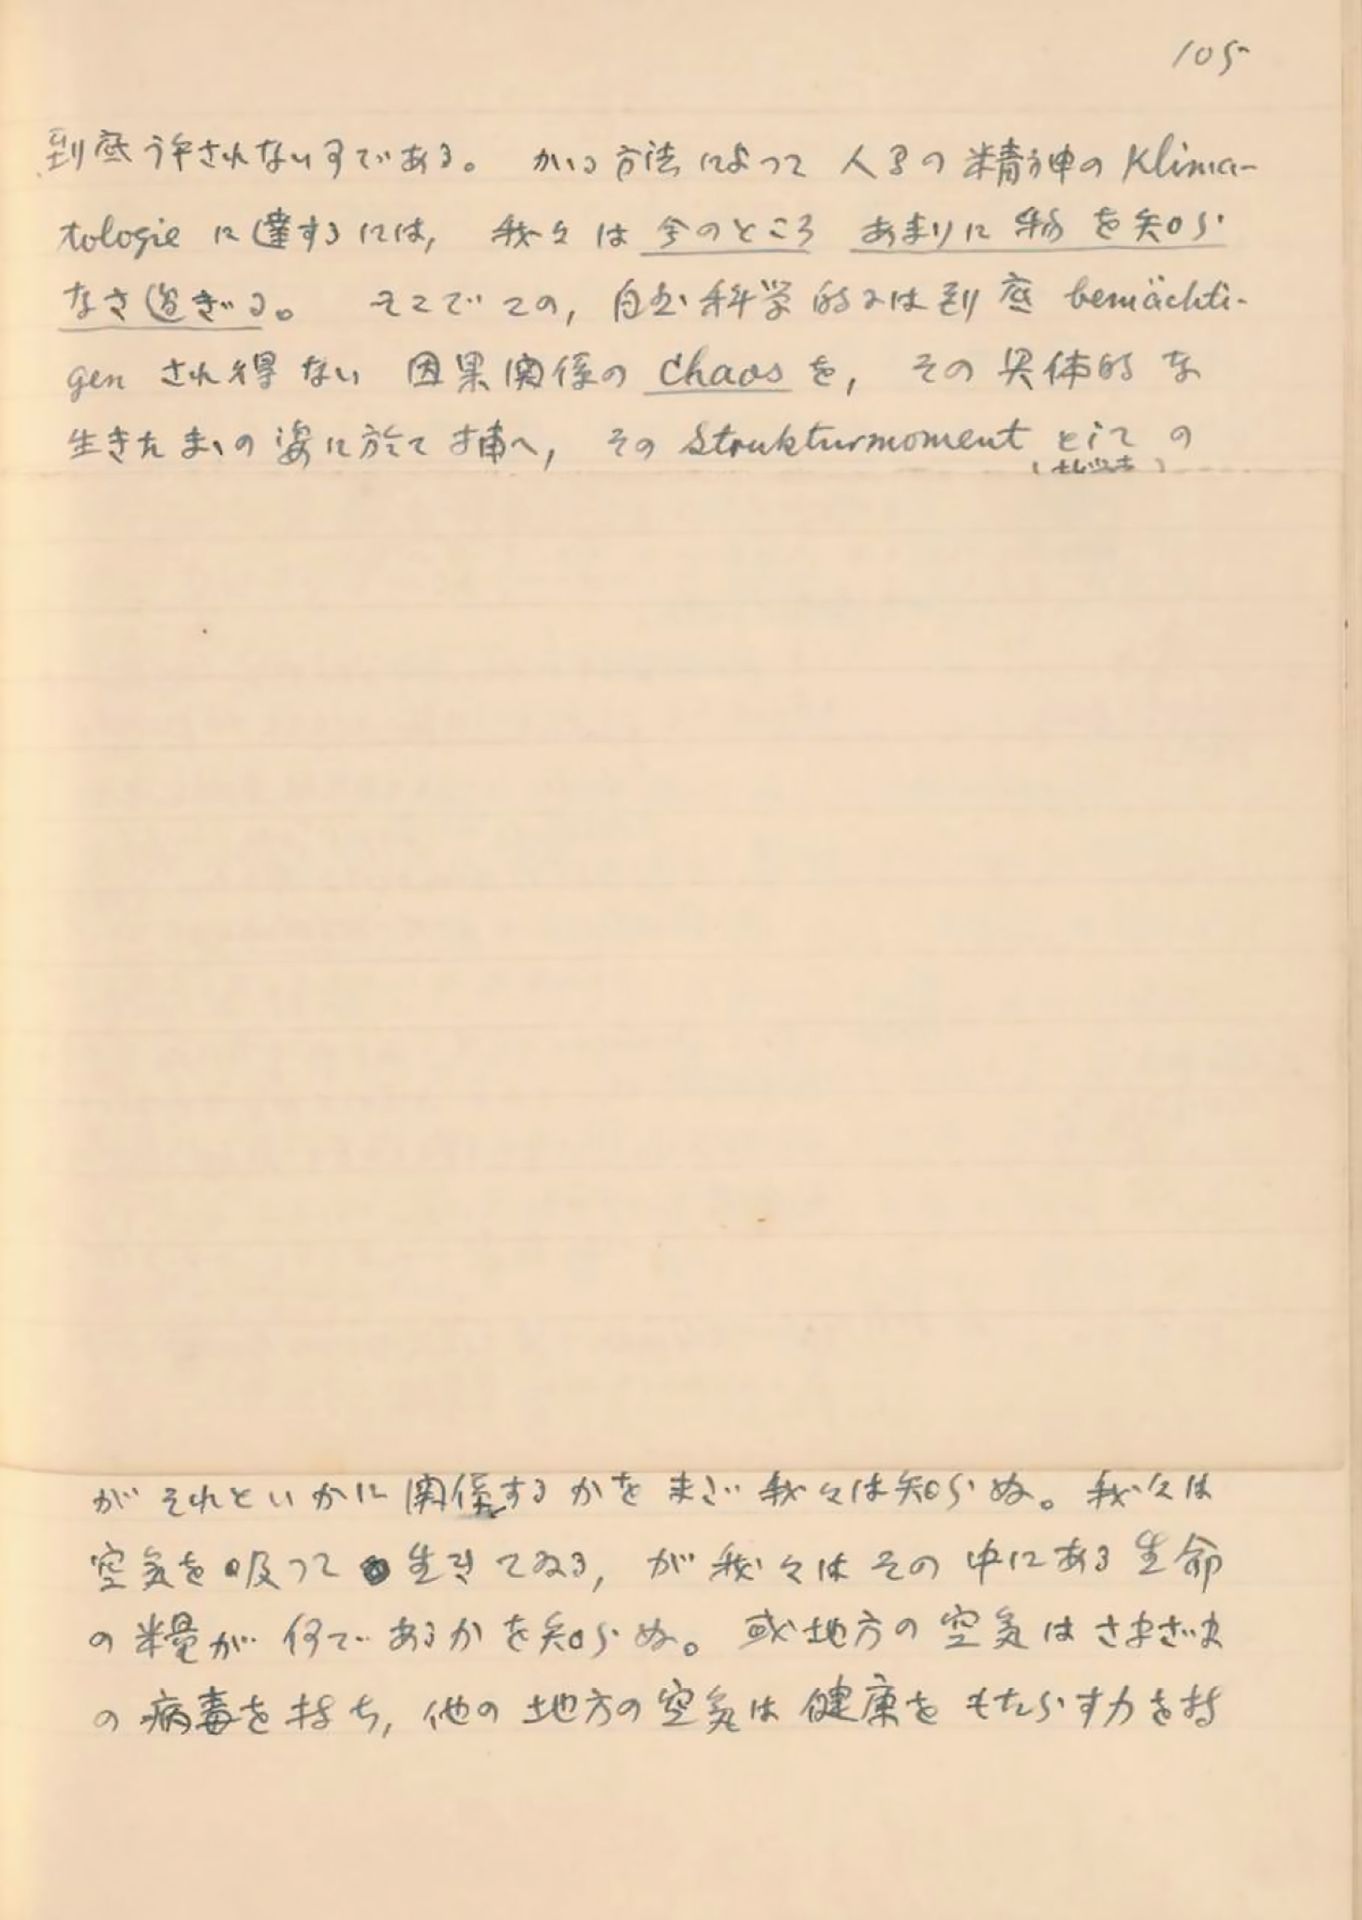 105
到底許されない事である。 かゝる方法によつて 人間の精神の Klima-
tologie に達するには, 我々は 今のところ あまりに を知ら
なさ過ぎる。 そこでこの, 自然科学的には到底 bemächti-
gen され得ない 因果関係の Chaos を, その具体的な
生きたまゝの姿に於て捕へ, その Strukturmoment としての
がそれといかに関係するかをまだ我々は知らぬ。我々は
空気を吸つて生きてゐる, が我々はその中にある生命
の糧が何であるかを知らぬ。或地方の空気はさまざま
の病毒を持ち, 他の地方の空気は健康をもたらす力を持